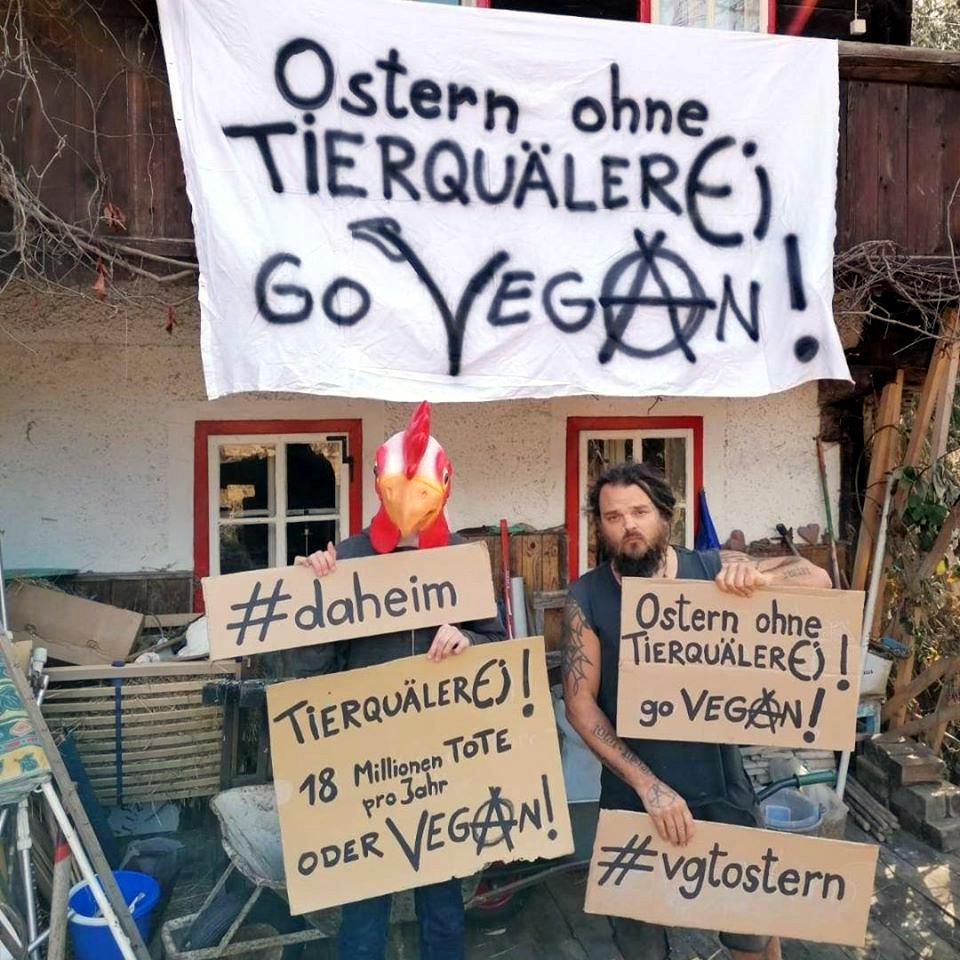 Ostern ohne
TiERQUÄLEREi
Go VEGAN!
#daheim
TiERQUÄLEREi!
18 Millionen TOTE
pro Jahr
ODER VEGAN!
Ostern ohne
TiERQUÄLEREi!
go VEGAN!
#vgtostern